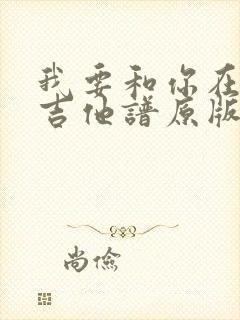 我要和你在
吉他譜原版
尚儉